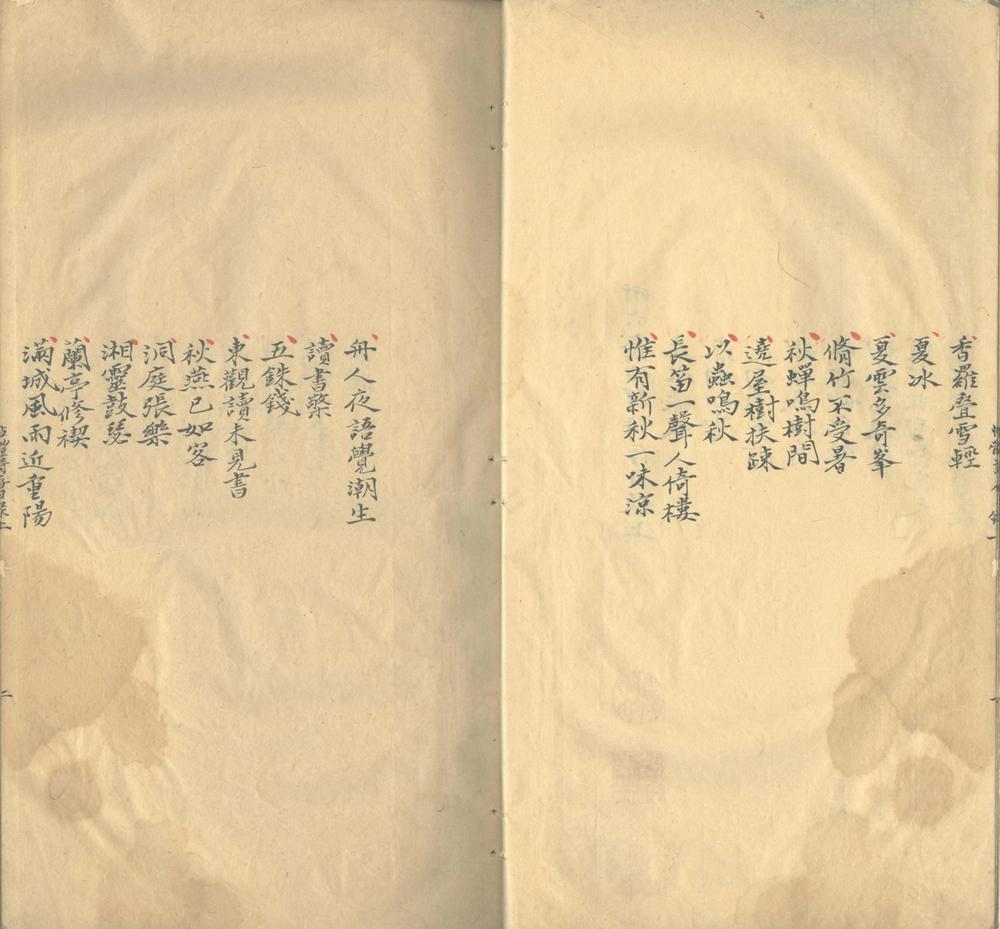 香羅疊雪輕
夏冰
夏雲多奇峯
脩竹不受暑
秋蟬鳴樹間
遶屋樹扶疎
以蟲鳴秋
長笛一聲人倚樓
惟有新秋一味涼
舟人夜語覺潮生
讀書檠
五銖錢
東觀讀未見書
秋燕已如客
洞庭張樂
湘靈鼓瑟
蘭亭修禊
滿城風雨近重陽
二